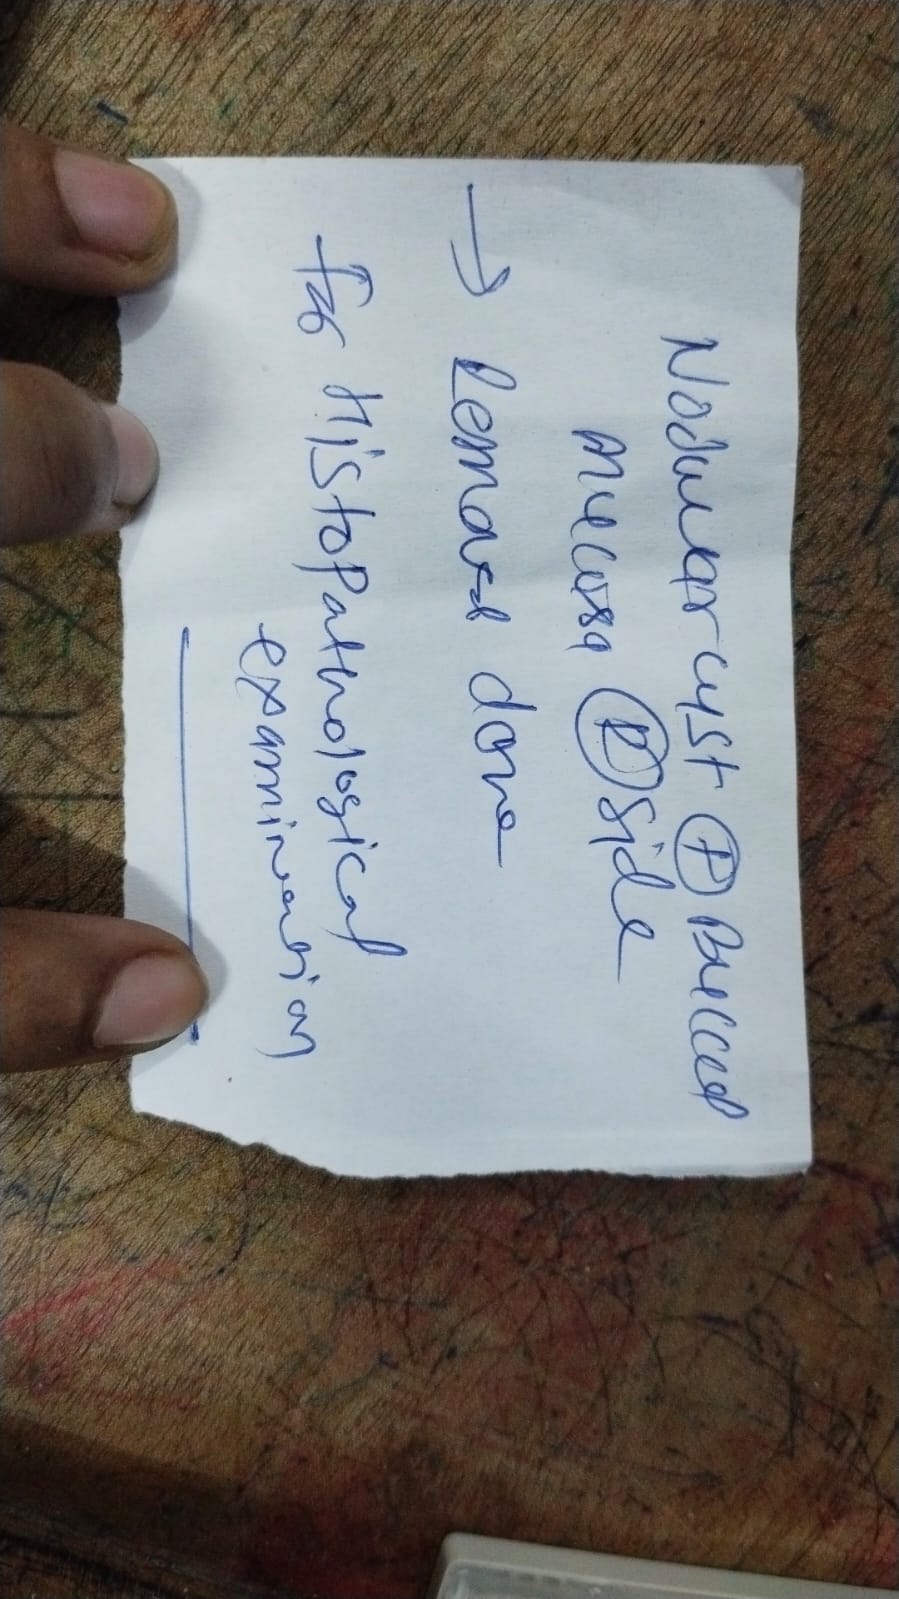 Nodular cyst (P) Buccal
mucosa (R) side
→ Removal done
for Histopathological
examination